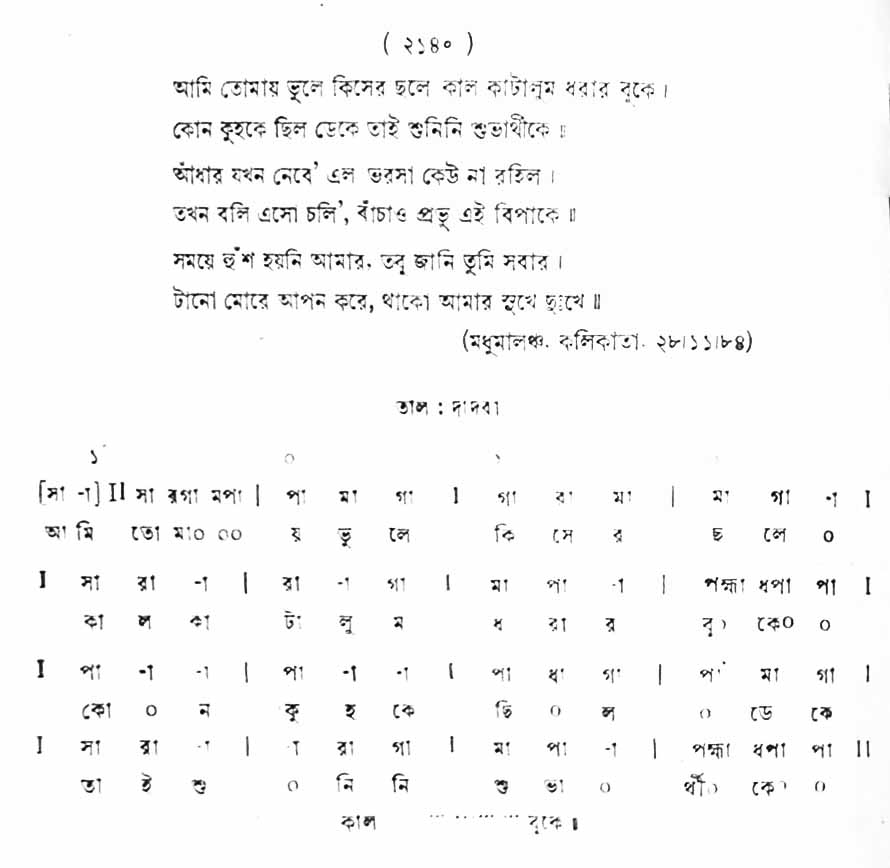 ( ২১৪০ )
আমি তোমায় ভুলে কিসের ছলে কাল কাটালুম ধরার বুকে ।
কোন কুহকে ছিল ডেকে তাই শুনিনি শুভার্থীকে ॥
আঁধার যখন নেবে' এল ভরসা কেউ না রহিল ।
তখন বলি এসো চলি', বাঁচাও প্রভু এই বিপাকে ॥
সময়ে হুঁশ হয়নি আমার, তবু জানি তুমি সবার ।
টানো মোরে আপন করে, থাকো আমার সুখে দুঃখে ॥
(মধুমালঞ্চ, কলিকাতা, ২৮।১১।৮৪)
তাল : দাদরা
১ ০ ১
[সা -া] II সা রগা মপা | পা মা গা I গা রা মা | মা গা -া I
আমি তো মা০ ০০ য় ভু লে কি সে র ছ লে ০
I সা রা -া | রা -া গা I মা পা -া | পহ্মা ধপা পা I
কা ল কা টা লু ম ধ রা র বু ০ কে০ ০
I পা -া -া | পা -া -া I পা ধা গা | পা মা গা I
কো ০ ন কু হ কে ছি ০ ল ০ ডে কে
I সা রা -া | -া রা গা I মা পা -া | পহ্মা ধপা পা II
তা ই শু ০ নি নি শু ভা ০ র্থী০ কে০ ০
কাল ............ বুকে ॥